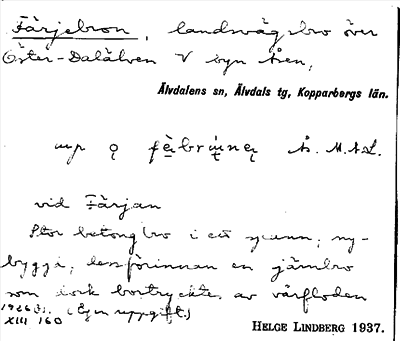 Färjebron, landsvägsbro över
Öster-Dalälven V byn Åsen,
Älvdalens sn, Älvdals tg, Kopparbergs län.
vid Färjan
Stor betongbro i ett spann, ny-
byggd, dessförinnan en järnbro
som dock bortrycktes av vårfloden
(Egen uppgift)
XIII 160
HELGE LINDBERG 1937.